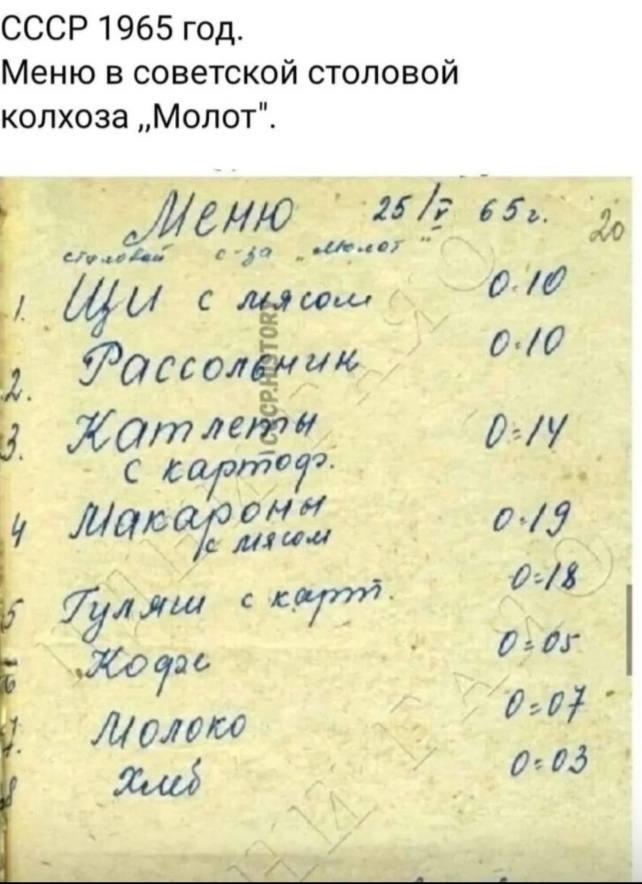 СССР 1965 год.
Меню в советской столовой
колхоза „Молот".
Меню 25/V 65г. 20
столовой с-за „Молот"
1. Щи с мясом 0-10
2. Рассольник 0-10
3. Катлеты 0=14
с картоф.
4 Макароны 0-19
с мясом
5 Гуляш с карт. 0=18
6 Кофе 0=05
7. Молоко 0=07
8 Хлеб 0=03
СССР.HISTORY